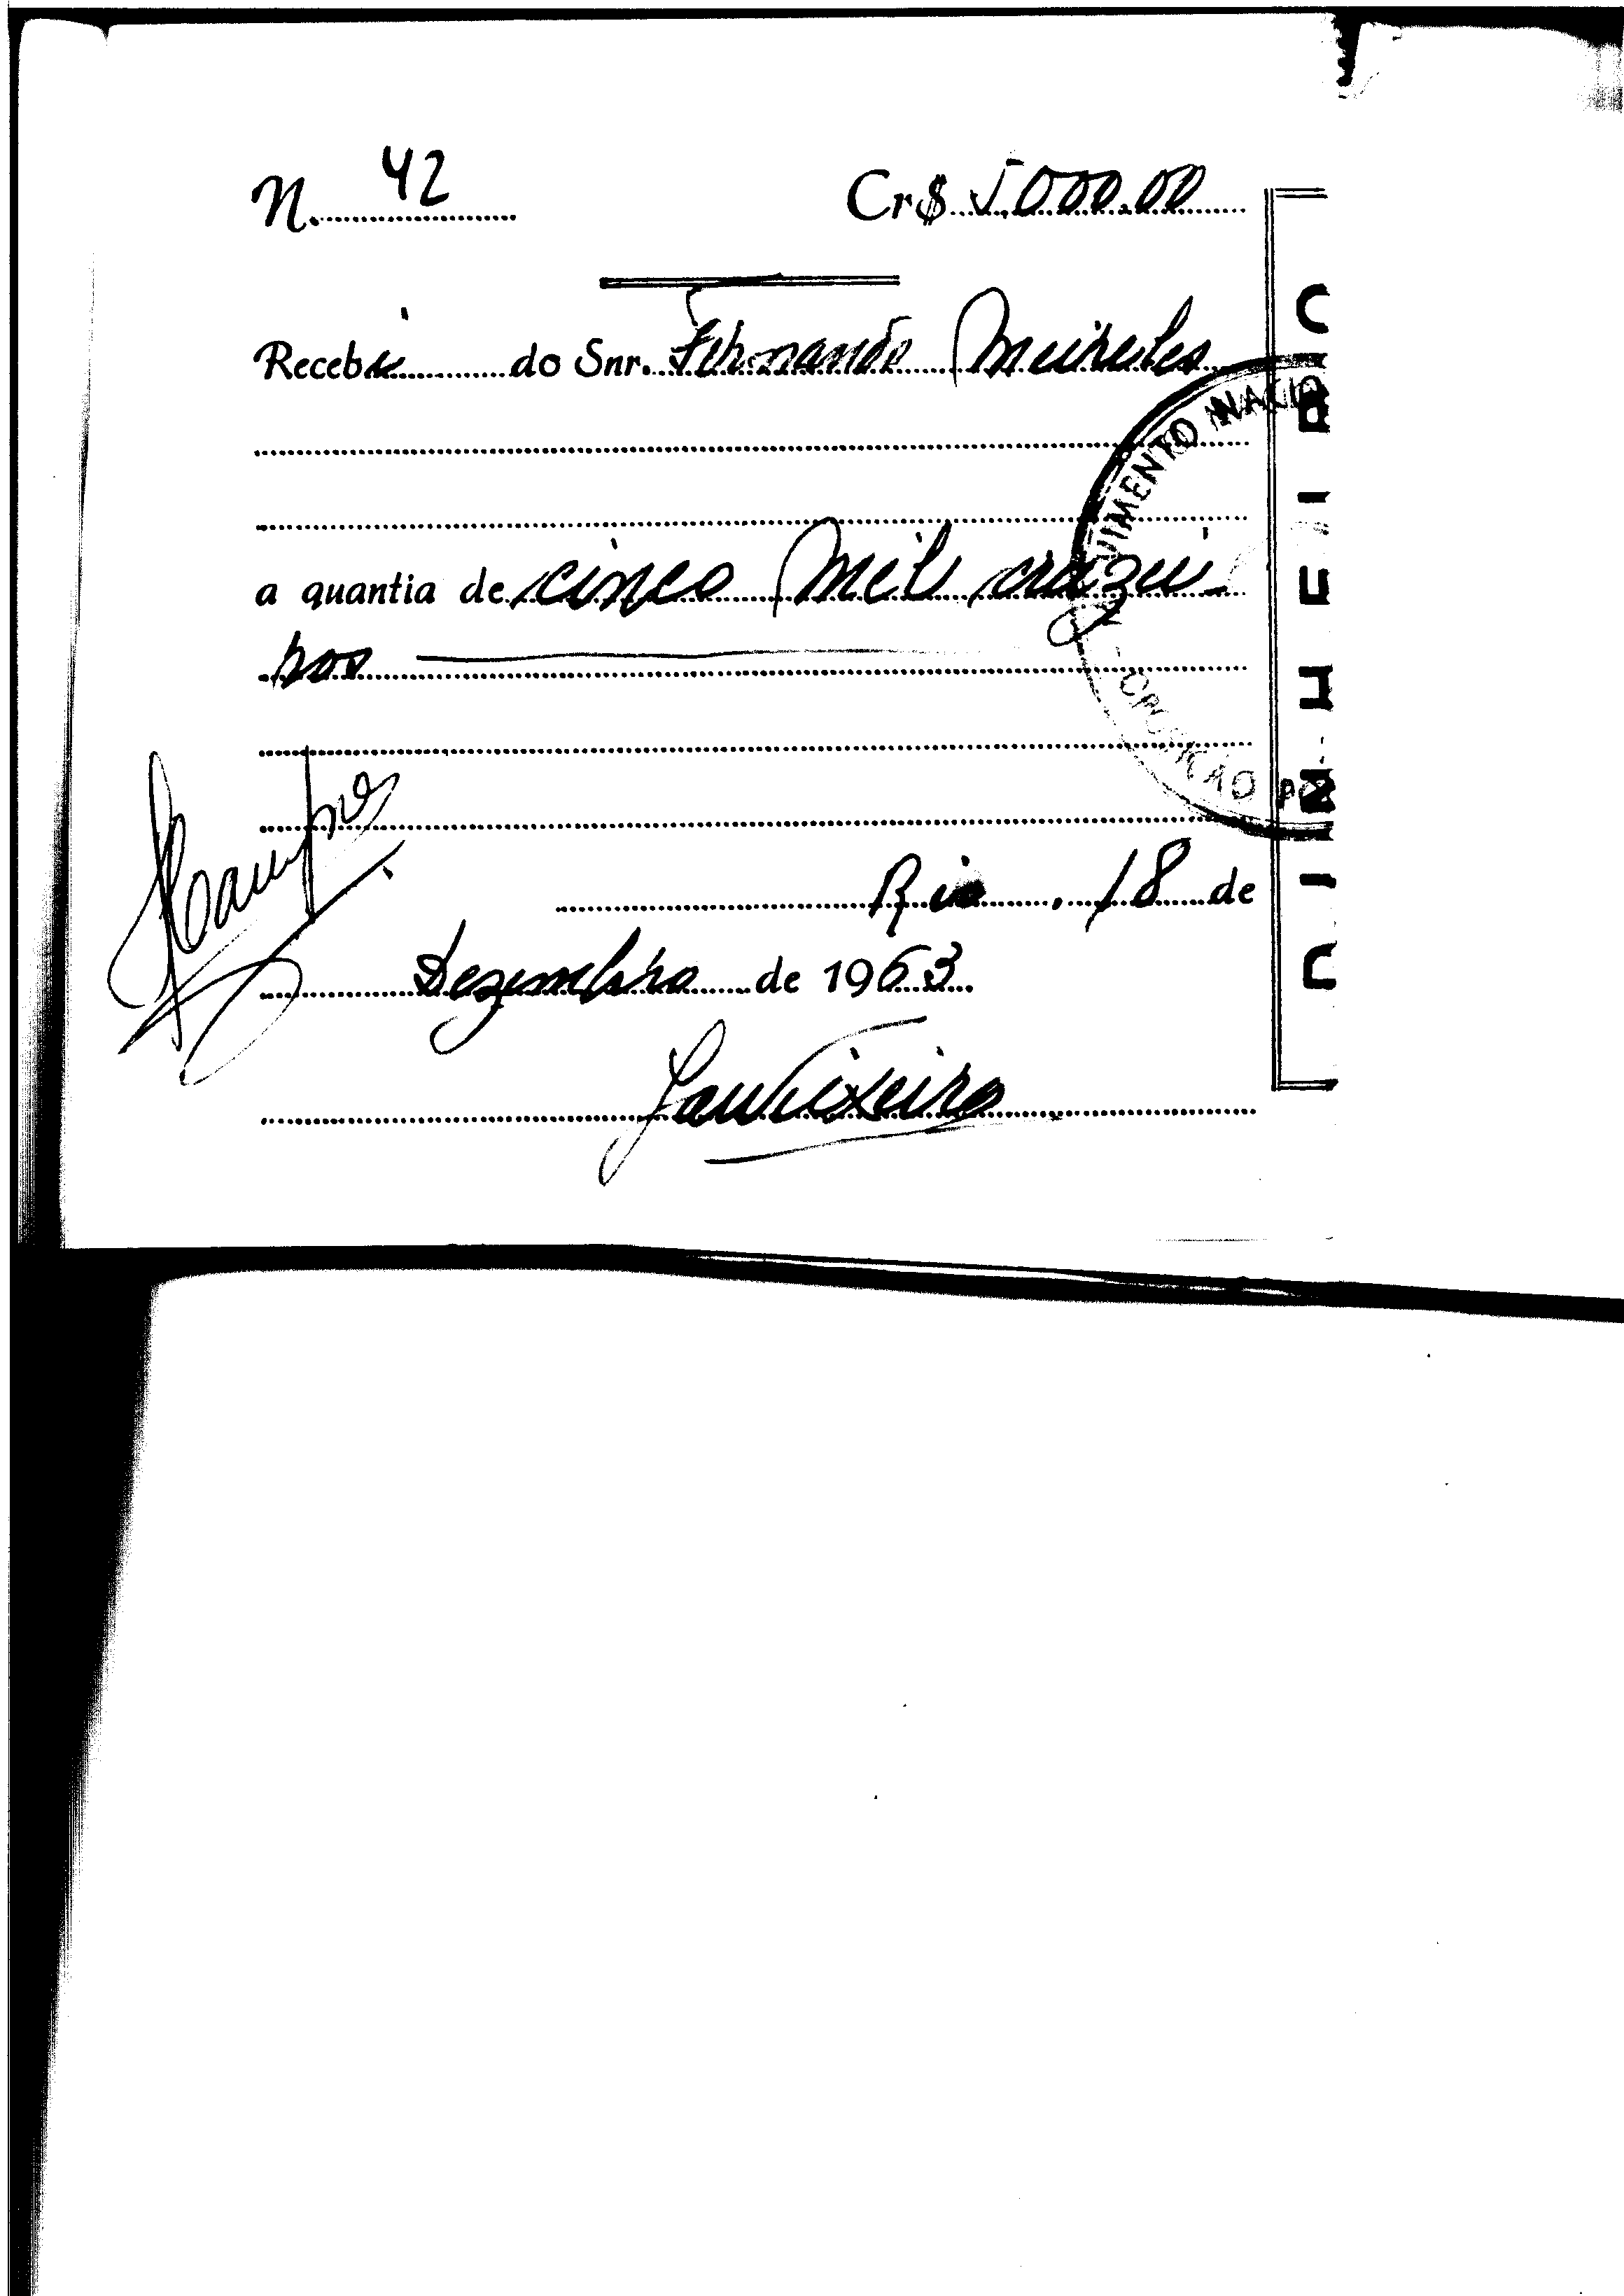 N. 42 Cr$ 5.000.00
Recebi do Snr. Fernando Meireles
a quantia de cinco mil cruzei-
ros
Rio, 18 de
Dezembro de 1963
VIMENTO NACIO
OPOSIÇÃO
Campos